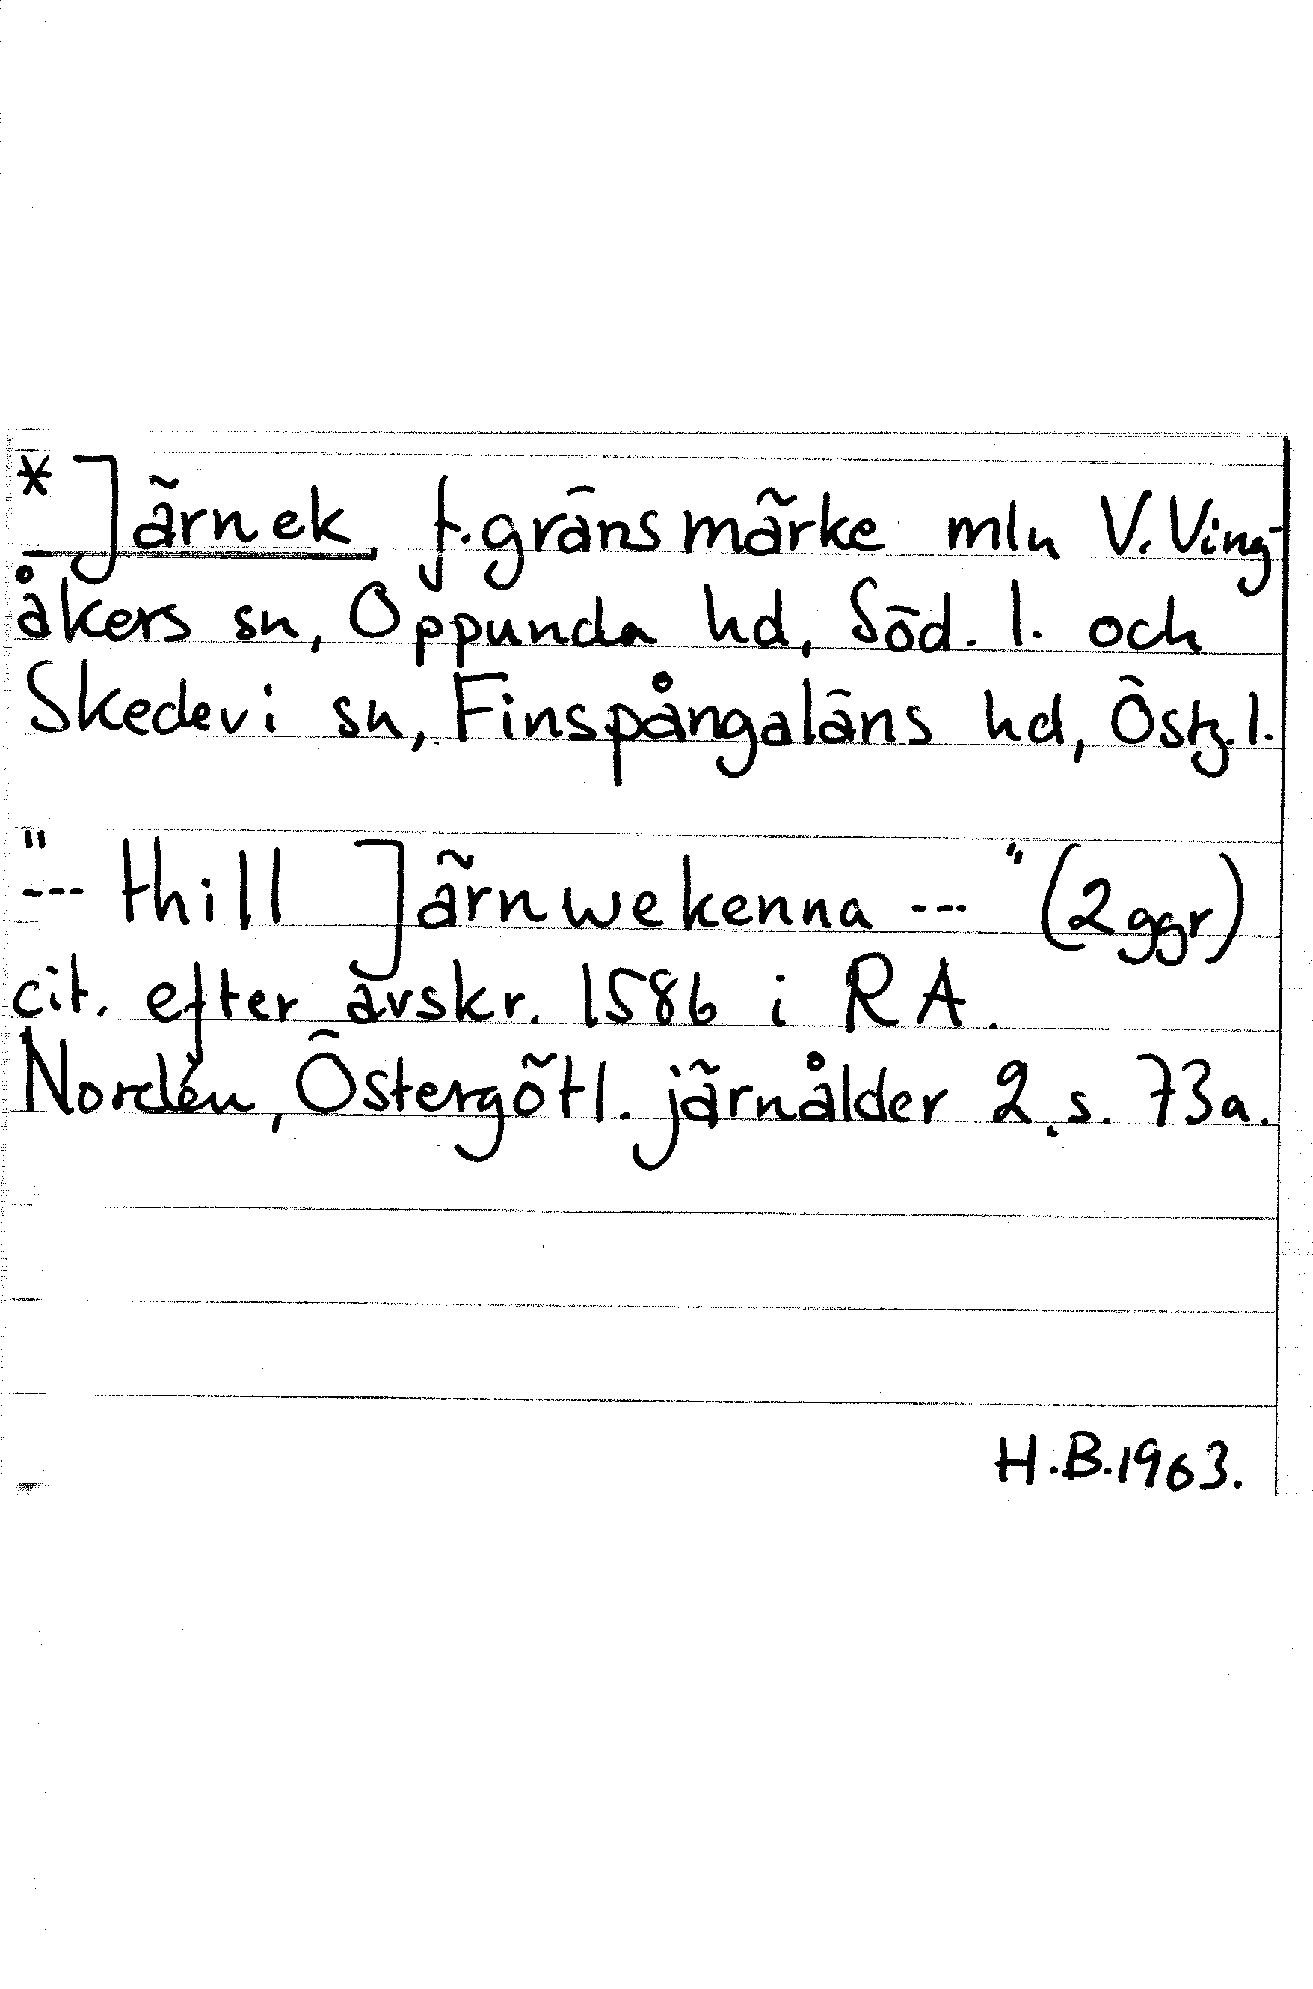 *Järnek, f. gränsmärke mln V. Ving-
åkers sn, Oppunda hd, Söd. l. och
Skedevi sn, Finspångaläns hd, Östg. l.
"--- thill Järnwekenna ---" (2 ggr)
cit. efter avskr. 1586 i RA.
Nordén, Östergötl. järnålder 2, s. 73a.
H.B. 1963.